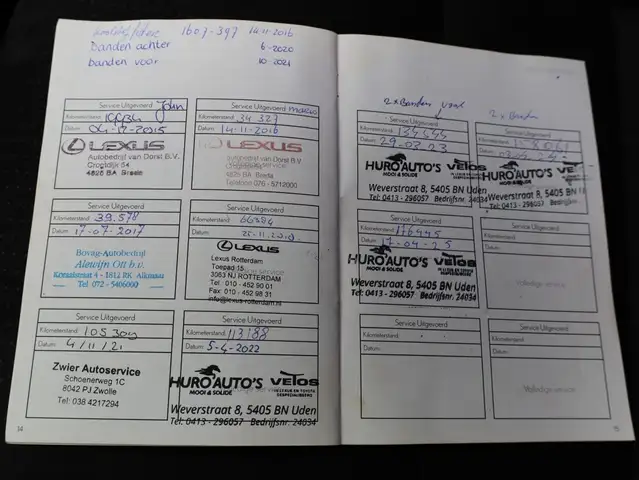 1607-397 14-11-2016
Banden achter 6-2020
banden voor 10-2021
Service Uitgevoerd John
Kilometerstand:
Datum: 04-12-2015
LEXUS
Autobedrijf van Dorst B.V.
Crogtdijk 54
4826 BA Breda
Service Uitgevoerd mario
Kilometerstand: 34 327
Datum: 14-11-2016
LEXUS
Autobedrijf van Dorst B.V.
Crogtdijk 54
4826 BA Breda
Telefoon 076 - 5712000
Service Uitgevoerd
Kilometerstand: 39.578
Datum: 17-07-2017
Bovag-Autobedrijf
Alewijn Ott b.v.
4 - 1812 RK Alkmaar
Tel 072 - 5406000
Service Uitgevoerd
Kilometerstand: 66384
Datum:
LEXUS
Lexus Rotterdam
Toepad 15
3063 NJ ROTTERDAM
Tel : 010 - 452 90 01
Fax : 010 - 452 98 31
info@lexus-rotterdam.nl
Service Uitgevoerd
Kilometerstand: 105 309
Datum: 4/11/21
Zwier Autoservice
Schoenerweg 1C
8042 PJ Zwolle
Tel: 038 4217294
Service Uitgevoerd
Kilometerstand: 113188
Datum: 5-4-2022
HURO AUTO'S
MOOI & SOLIDE
VETOS
DE LEXUS EN TOYOTA
GESPECIALISEERD
Weverstraat 8, 5405 BN Uden
Tel: 0413 - 296057 Bedrijfsnr. 24034
14
2x Banden
Service Uitgevoerd
Kilometerstand: 134545
Datum:
HURO AUTO'S
MOOI & SOLIDE
VETOS
Weverstraat 8, 5405 BN Uden
Tel: 0413 - 296057 Bedrijfsnr. 24034
2x Banden
Service Uitgevoerd
Kilometerstand:
Datum:
HURO AUTO'S
MOOI & SOLIDE
Weverstraat 8, 5405 BN
Tel: 0413 - 296057
Service Uitgevoerd
Kilometerstand: 176445
Datum: 17-04-25
HURO AUTO'S
MOOI & SOLIDE
VETOS
Weverstraat 8, 5405 BN Uden
Tel: 0413 - 296057 Bedrijfsnr. 24034
Service Uitgevoerd
Kilometerstand:
Datum:
Volledige service
Service Uitgevoerd
Kilometerstand:
Datum:
Service Uitgevoerd
Kilometerstand:
Datum:
Volledige service
15